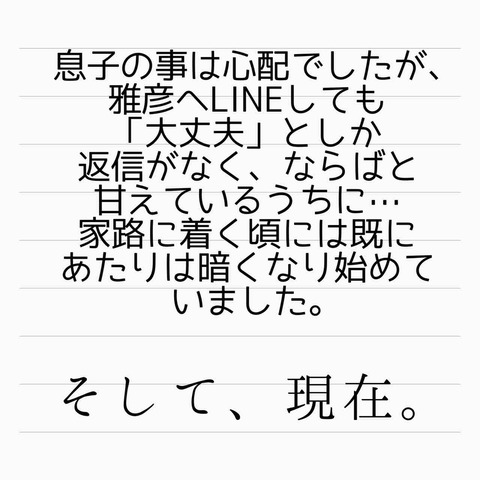 息子の事は心配でしたが、
雅彦へLINEしても
「大丈夫」としか
返信がなく、ならばと
甘えているうちに…
家路に着く頃には既に
あたりは暗くなり始めて
いました。
そして、現在。